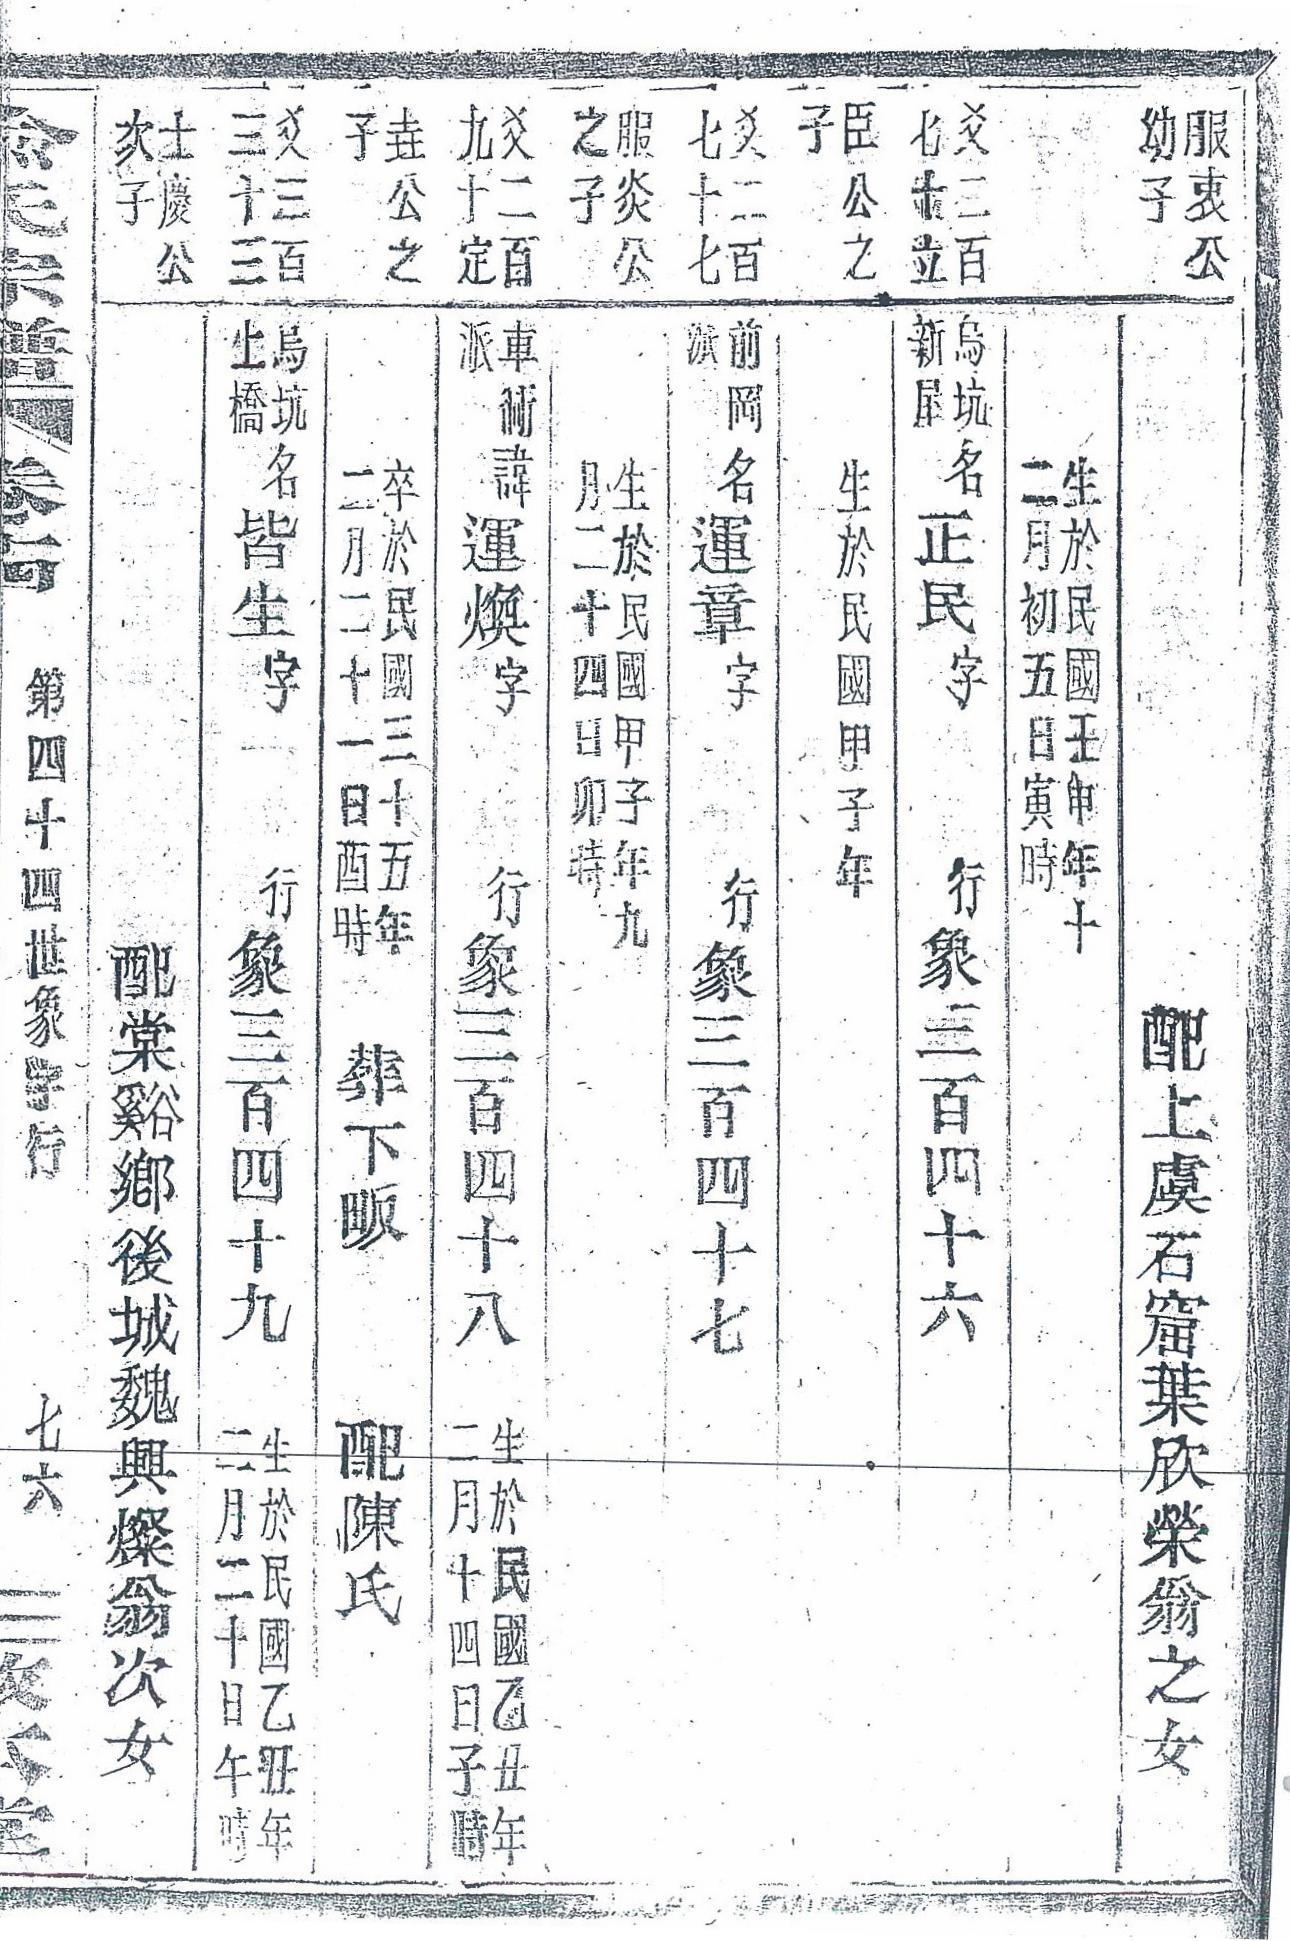 服衷公
幼子
配上虞石窟葉欣榮翁之女
生於民國壬申年十
二月初五日寅時
爻二百
七十立
烏坑
新屋
名正民字 行象三百四十六
臣公之
子
生於民國甲子年
爻二百
七十七
前岡
派
名運章字 行象三百四十七
服炎公
之子
生於民國甲子年九
月二十四日卯時
爻二百
九十定
車衕
派
諱運煥字 行象三百四十八
生於民國乙丑年
二月十四日子時
垚公之
子
卒於民國三十五年
二月二十一日酉時
葬下畈 配陳氏
爻三百
三十三
烏坑
上橋
名皆生字 行象三百四十九
生於民國乙丑年
二月二十日午時
士慶公
次子
配棠谿鄉後城魏興燦翁次女
氏宗譜 卷 第四十四世象字行 七六